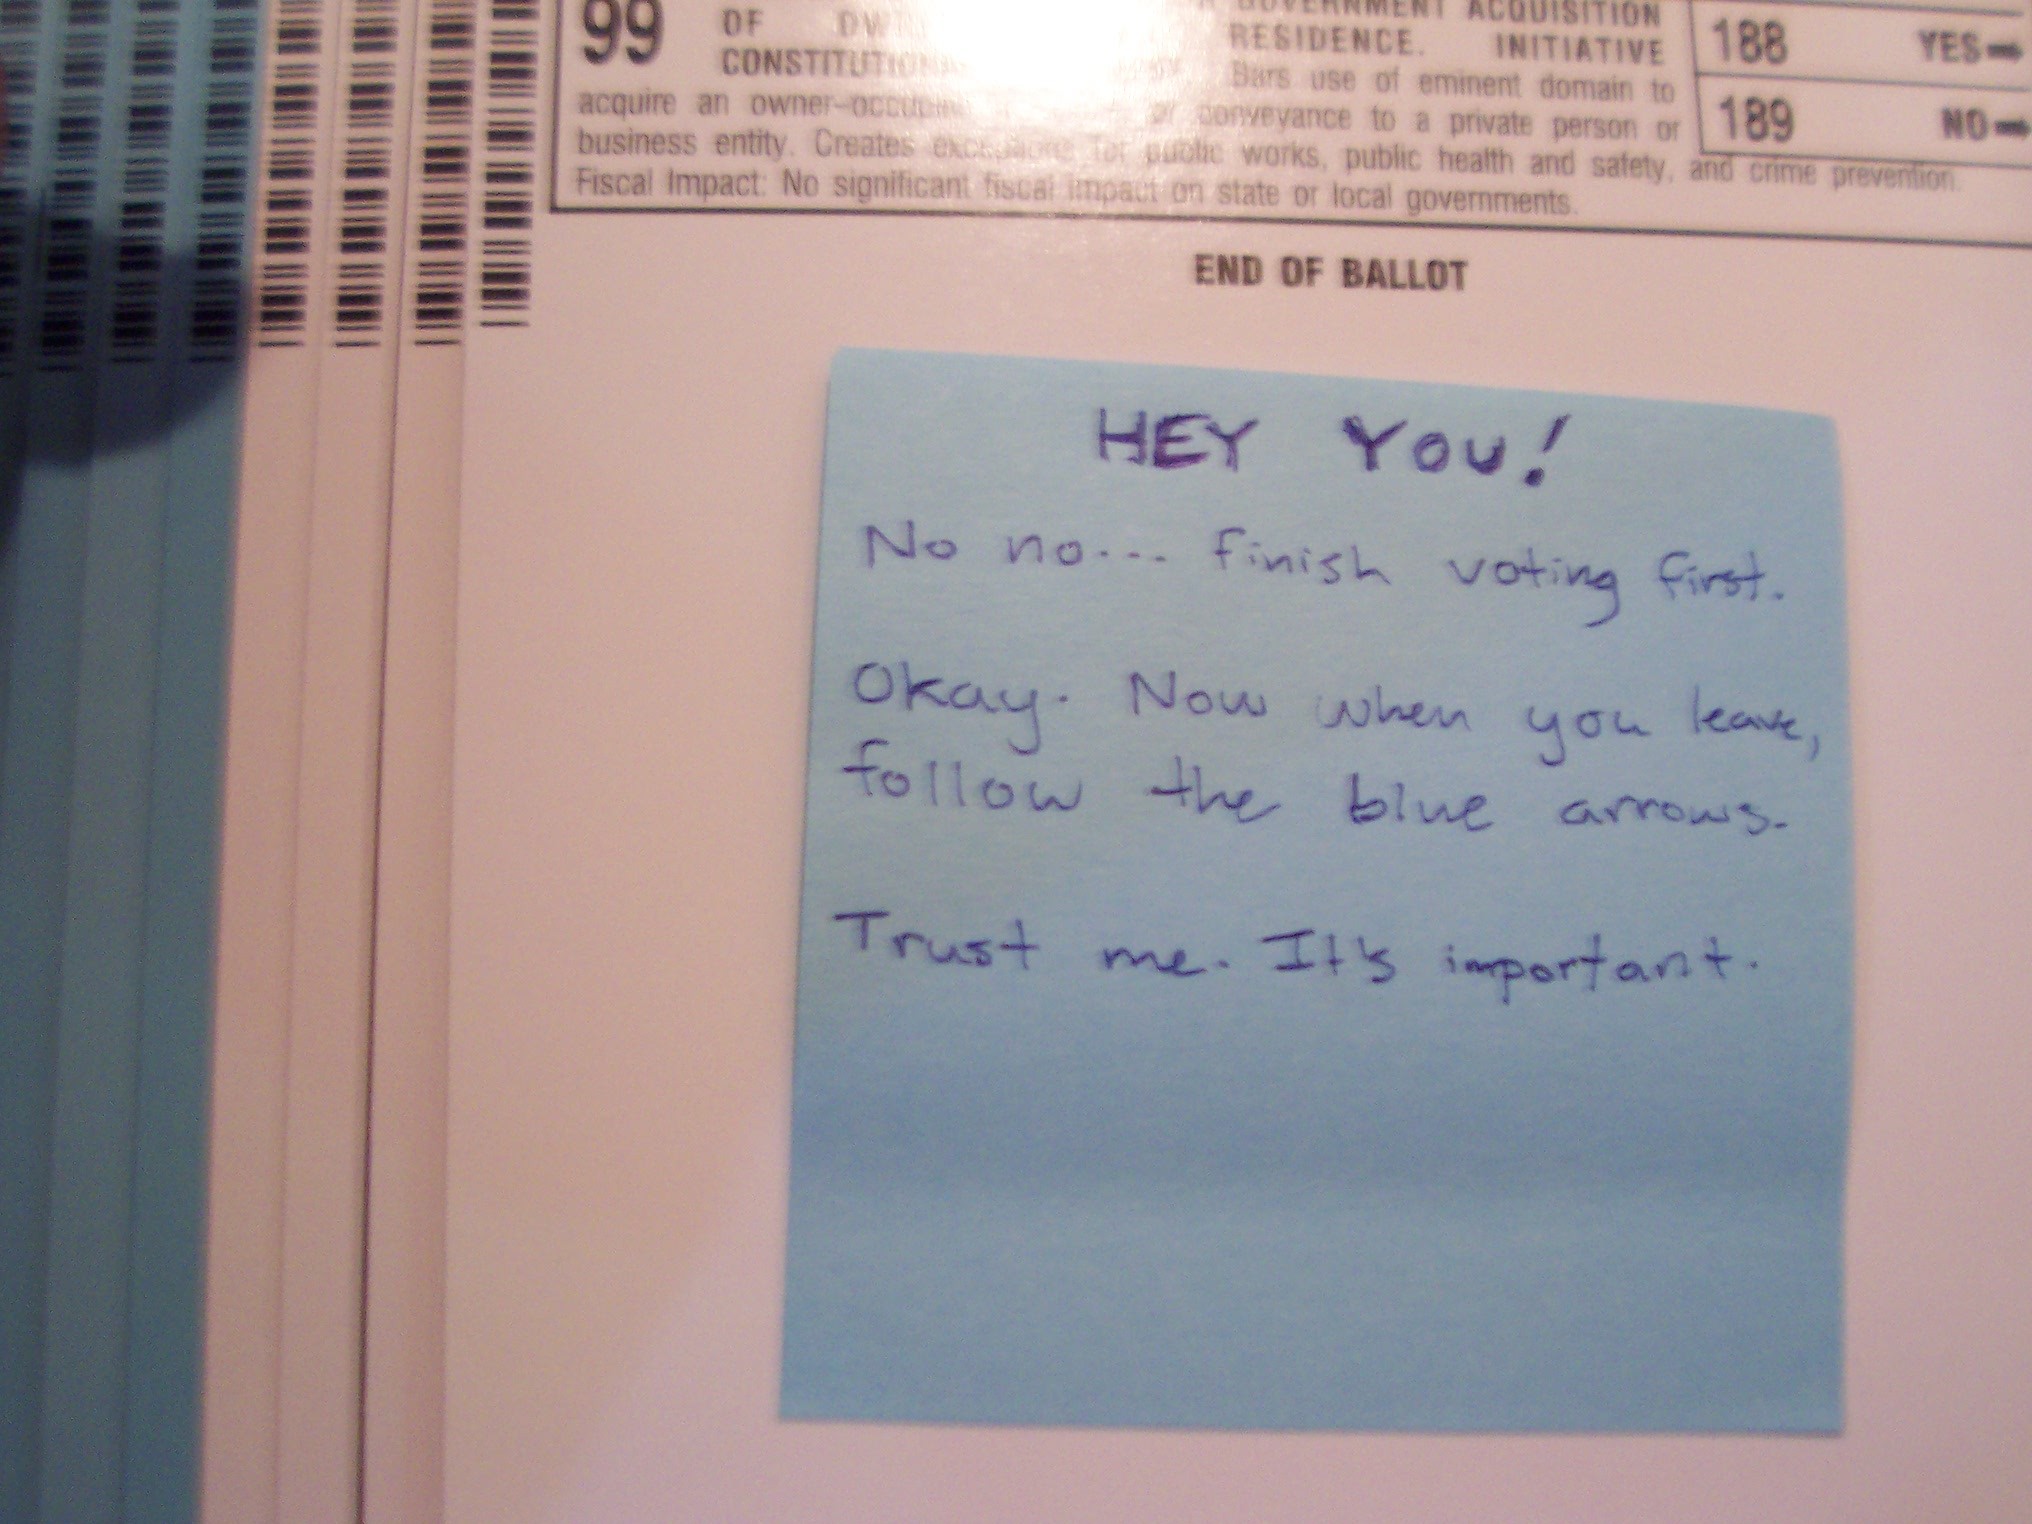 99 OF GOVERNMENT ACQUISITION
CONSTITUTION RESIDENCE. INITIATIVE
Bars use of eminent domain to
acquire an owner-occupied or conveyance to a private person or
business entity. Creates exceptions for public works, public health and safety, and crime prevention.
Fiscal Impact: No significant fiscal impact on state or local governments.
188 YES
189 NO
END OF BALLOT
HEY YOU!
No no... finish voting first.
Okay. Now when you leave,
follow the blue arrows.
Trust me. It's important.